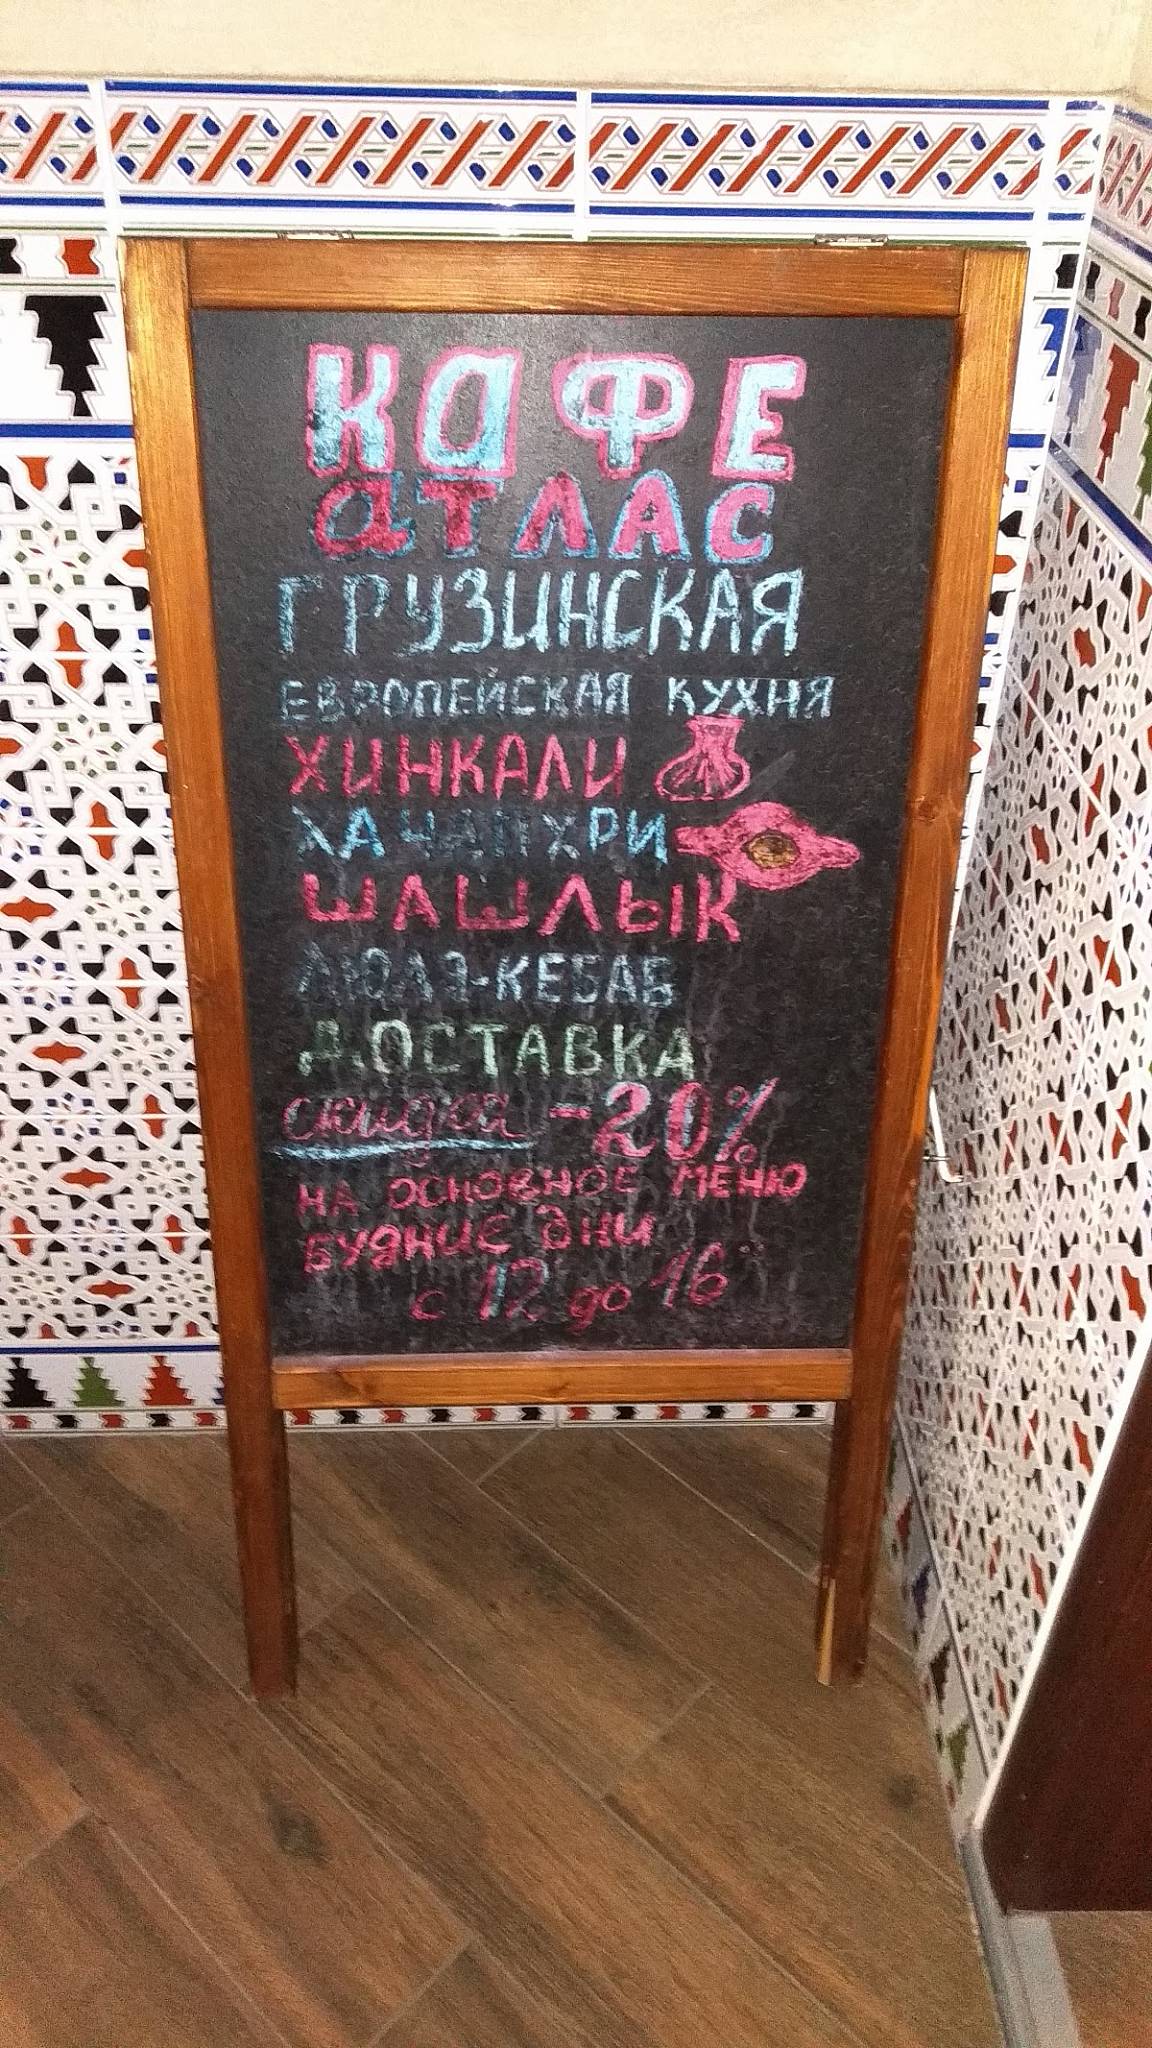 КАФЕ
АТЛАС
ГРУЗИНСКАЯ
ЕВРОПЕЙСКАЯ КУХНЯ
ХИНКАЛИ
ХАЧАПХРИ
ШАШЛЫК
ЛЮЛЯ-КЕБАБ
ДОСТАВКА
скидка -20%
НА ОСНОВНОЕ МЕНЮ
БУДНИЕ ДНИ
с 12 до 16°°